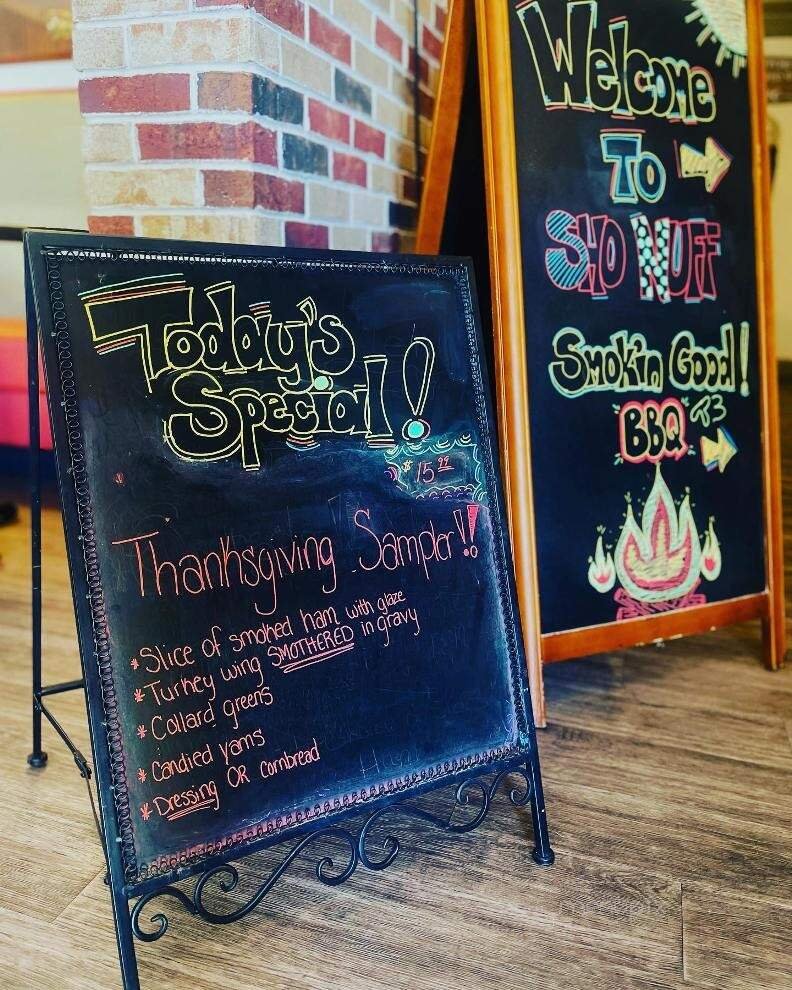 Today's
Special!
$15.99
Thanksgiving Sampler!!
*Slice of smoked ham with glaze
*Turkey wing SMOTHERED in gravy
*Collard greens
*Candied yams
*Dressing OR cornbread
Welcome
To
SHO NUFF
Smokin Good!
BBQ